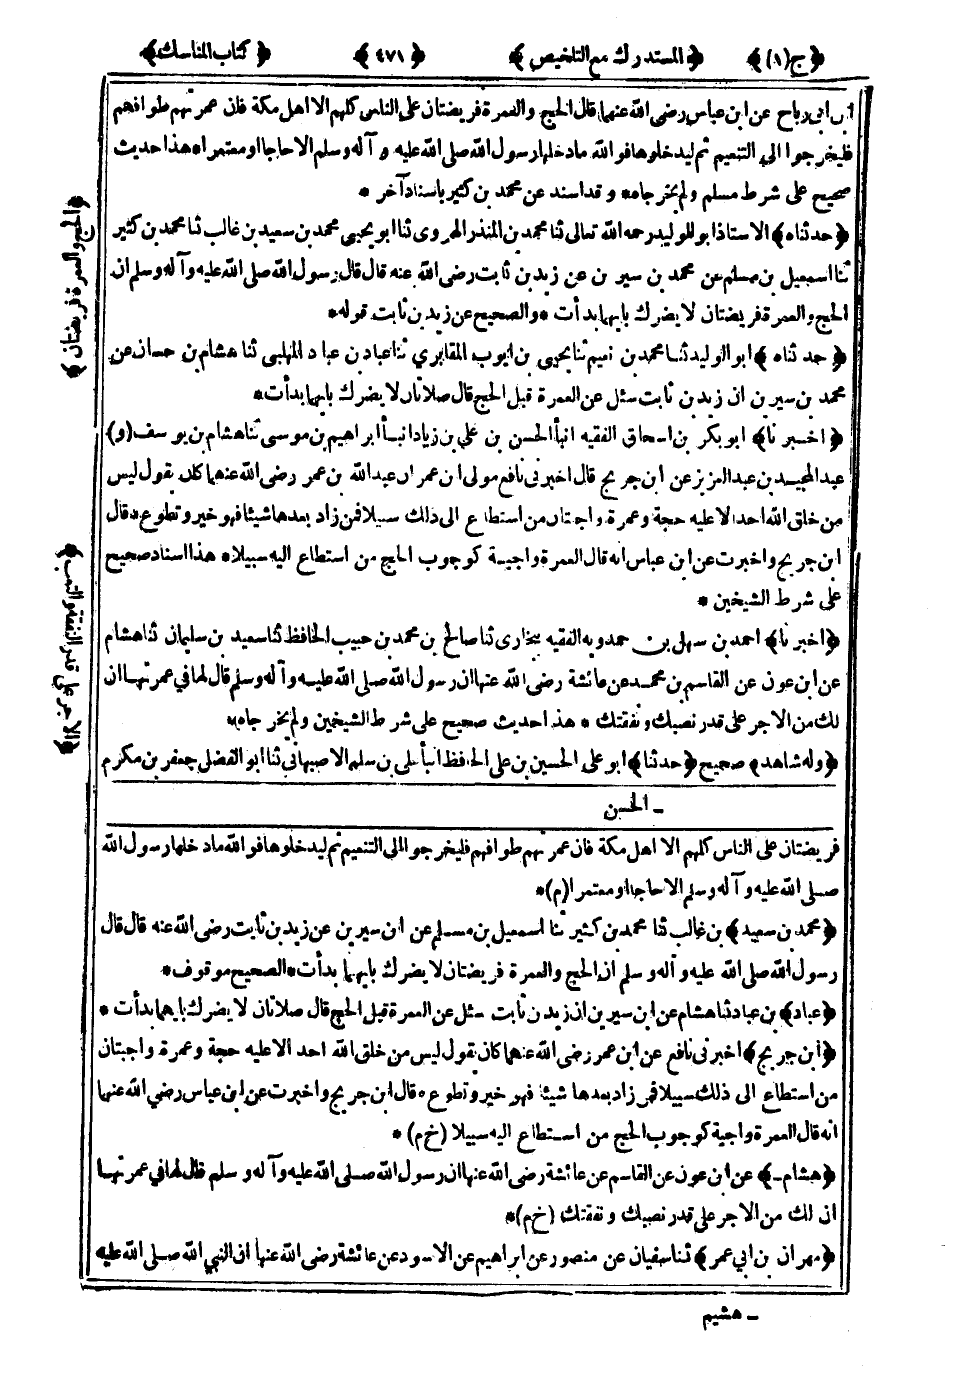 ﴿ج(١)﴾ ﴿المستدرك مع التلخيص﴾ ﴿٤٧١﴾ ﴿كتاب المناسك﴾
ابن ابى رباح عن ابن عباس رضى الله عنهما قال الحج والعمرة فريضتان على الناس كلهم الا اهل مكة فان عمرتهم طوافهم
فليخرجوا الى التنعيم ثم ليدخلوها فوالله ما دخلها رسول الله صلى الله عليه وآله وسلم الا حاجا او معتمرا* هذا حديث
صحيح على شرط مسلم ولم يخرجاه* وقد اسند عن محمد بن كثير باسناد آخر *
﴿حدثناه﴾ الاستاذ ابو الوليد رحمه الله تعالى ثنا محمد بن المنذر الهروى ثنا ابو يحيى محمد بن سعيد بن غالب ثنا محمد بن كثير
ثنا اسمعيل بن مسلم عن محمد بن سيرين عن زيد بن ثابت رضى الله عنه قال قال رسول الله صلى الله عليه وآله وسلم ان
الحج والعمرة فريضتان لا يضرك بايهما بدأت * والصحيح عن زيد بن ثابت قوله*
﴿حدثناه﴾ ابو الوليد ثنا محمد بن نعيم ثنا يحيى بن ايوب المقابرى ثنا عباد بن عباد المهلبى ثنا هشام بن حسان عن
محمد بن سيرين ان زيد بن ثابت سئل عن العمرة قبل الحج قال صلاتان لا يضرك بايهما بدأت*
﴿اخبرنا﴾ ابو بكر بن اسحاق الفقيه انبأ الحسن بن على بن زياد انبأ ابراهيم بن موسى ثنا هشام بن يوسف (و)
عبد المجيد بن عبد العزيز عن ابن جريج قال اخبرنى نافع مولى ابن عمر ان عبد الله بن عمر رضى الله عنهما كان يقول ليس
من خلق الله احد الا عليه حجة وعمرة واجبتان من استطاع الى ذلك سبيلا فمن زاد بعدها شيئا فهو خير وتطوع* قال
ابن جريج واخبرت عن ابن عباس انه قال العمرة واجبة كوجوب الحج من استطاع اليه سبيلا* هذا اسناد صحيح
على شرط الشيخين *
﴿اخبرنا﴾ احمد بن سهل بن حمدويه الفقيه ببخارى ثنا صالح بن محمد بن حبيب الحافظ ثنا سعيد بن سليمان ثنا هشام
عن ابن عون عن القاسم بن محمد عن عائشة رضى الله عنها ان رسول الله صلى الله عليه وآله وسلم قال لها فى عمرتها ان
لك من الاجر على قدر نصبك ونفقتك * هذا حديث صحيح على شرط الشيخين ولم يخرجاه*
﴿وله شاهد﴾ صحيح ﴿حدثنا﴾ ابو على الحسين بن على الحافظ انبأ على بن سلم الاصبهانى ثنا ابو الفضل جعفر بن مكرم
ـ الحسن
فريضتان على الناس كلهم الا اهل مكة فان عمرتهم طوافهم فليخرجوا الى التنعيم ثم ليدخلوها فوالله ما دخلها رسول الله
صلى الله عليه وآله وسلم الا حاجا او معتمرا (م)*
﴿محمد بن سعيد﴾ بن غالب ثنا محمد بن كثير ثنا اسمعيل بن مسلم عن ابن سيرين عن زيد بن ثابت رضى الله عنه قال قال
رسول الله صلى الله عليه وآله وسلم ان الحج والعمرة فريضتان لا يضرك بايهما بدأت* الصحيح موقوف*
﴿عباد﴾ بن عباد ثنا هشام عن ابن سيرين ان زيد بن ثابت سئل عن العمرة قبل الحج قال صلاتان لا يضرك بايهما بدأت *
﴿ابن جريج﴾ اخبرنى نافع عن ابن عمر رضى الله عنهما كان يقول ليس من خلق الله احد الا عليه حجة وعمرة واجبتان
من استطاع الى ذلك سبيلا فمن زاد بعدها شيئا فهو خير وتطوع* قال ابن جريج واخبرت عن ابن عباس رضى الله عنهما
انه قال العمرة واجبة كوجوب الحج من استطاع اليه سبيلا (خ م) *
﴿هشام ـ﴾ عن ابن عون عن القاسم عن عائشة رضى الله عنها ان رسول الله صلى الله عليه وآله وسلم قال لها فى عمرتها
ان لك من الاجر على قدر نصبك ونفقتك (خ م)*
﴿مهران بن ابى عمر﴾ ثنا سفيان عن منصور عن ابراهيم عن الاسود عن عائشة رضى الله عنها ان النبى صلى الله عليه
ـ هشيم
﴿الحج والعمرة فريضتان﴾
﴿الاجر على قدر النفقة والتعب﴾